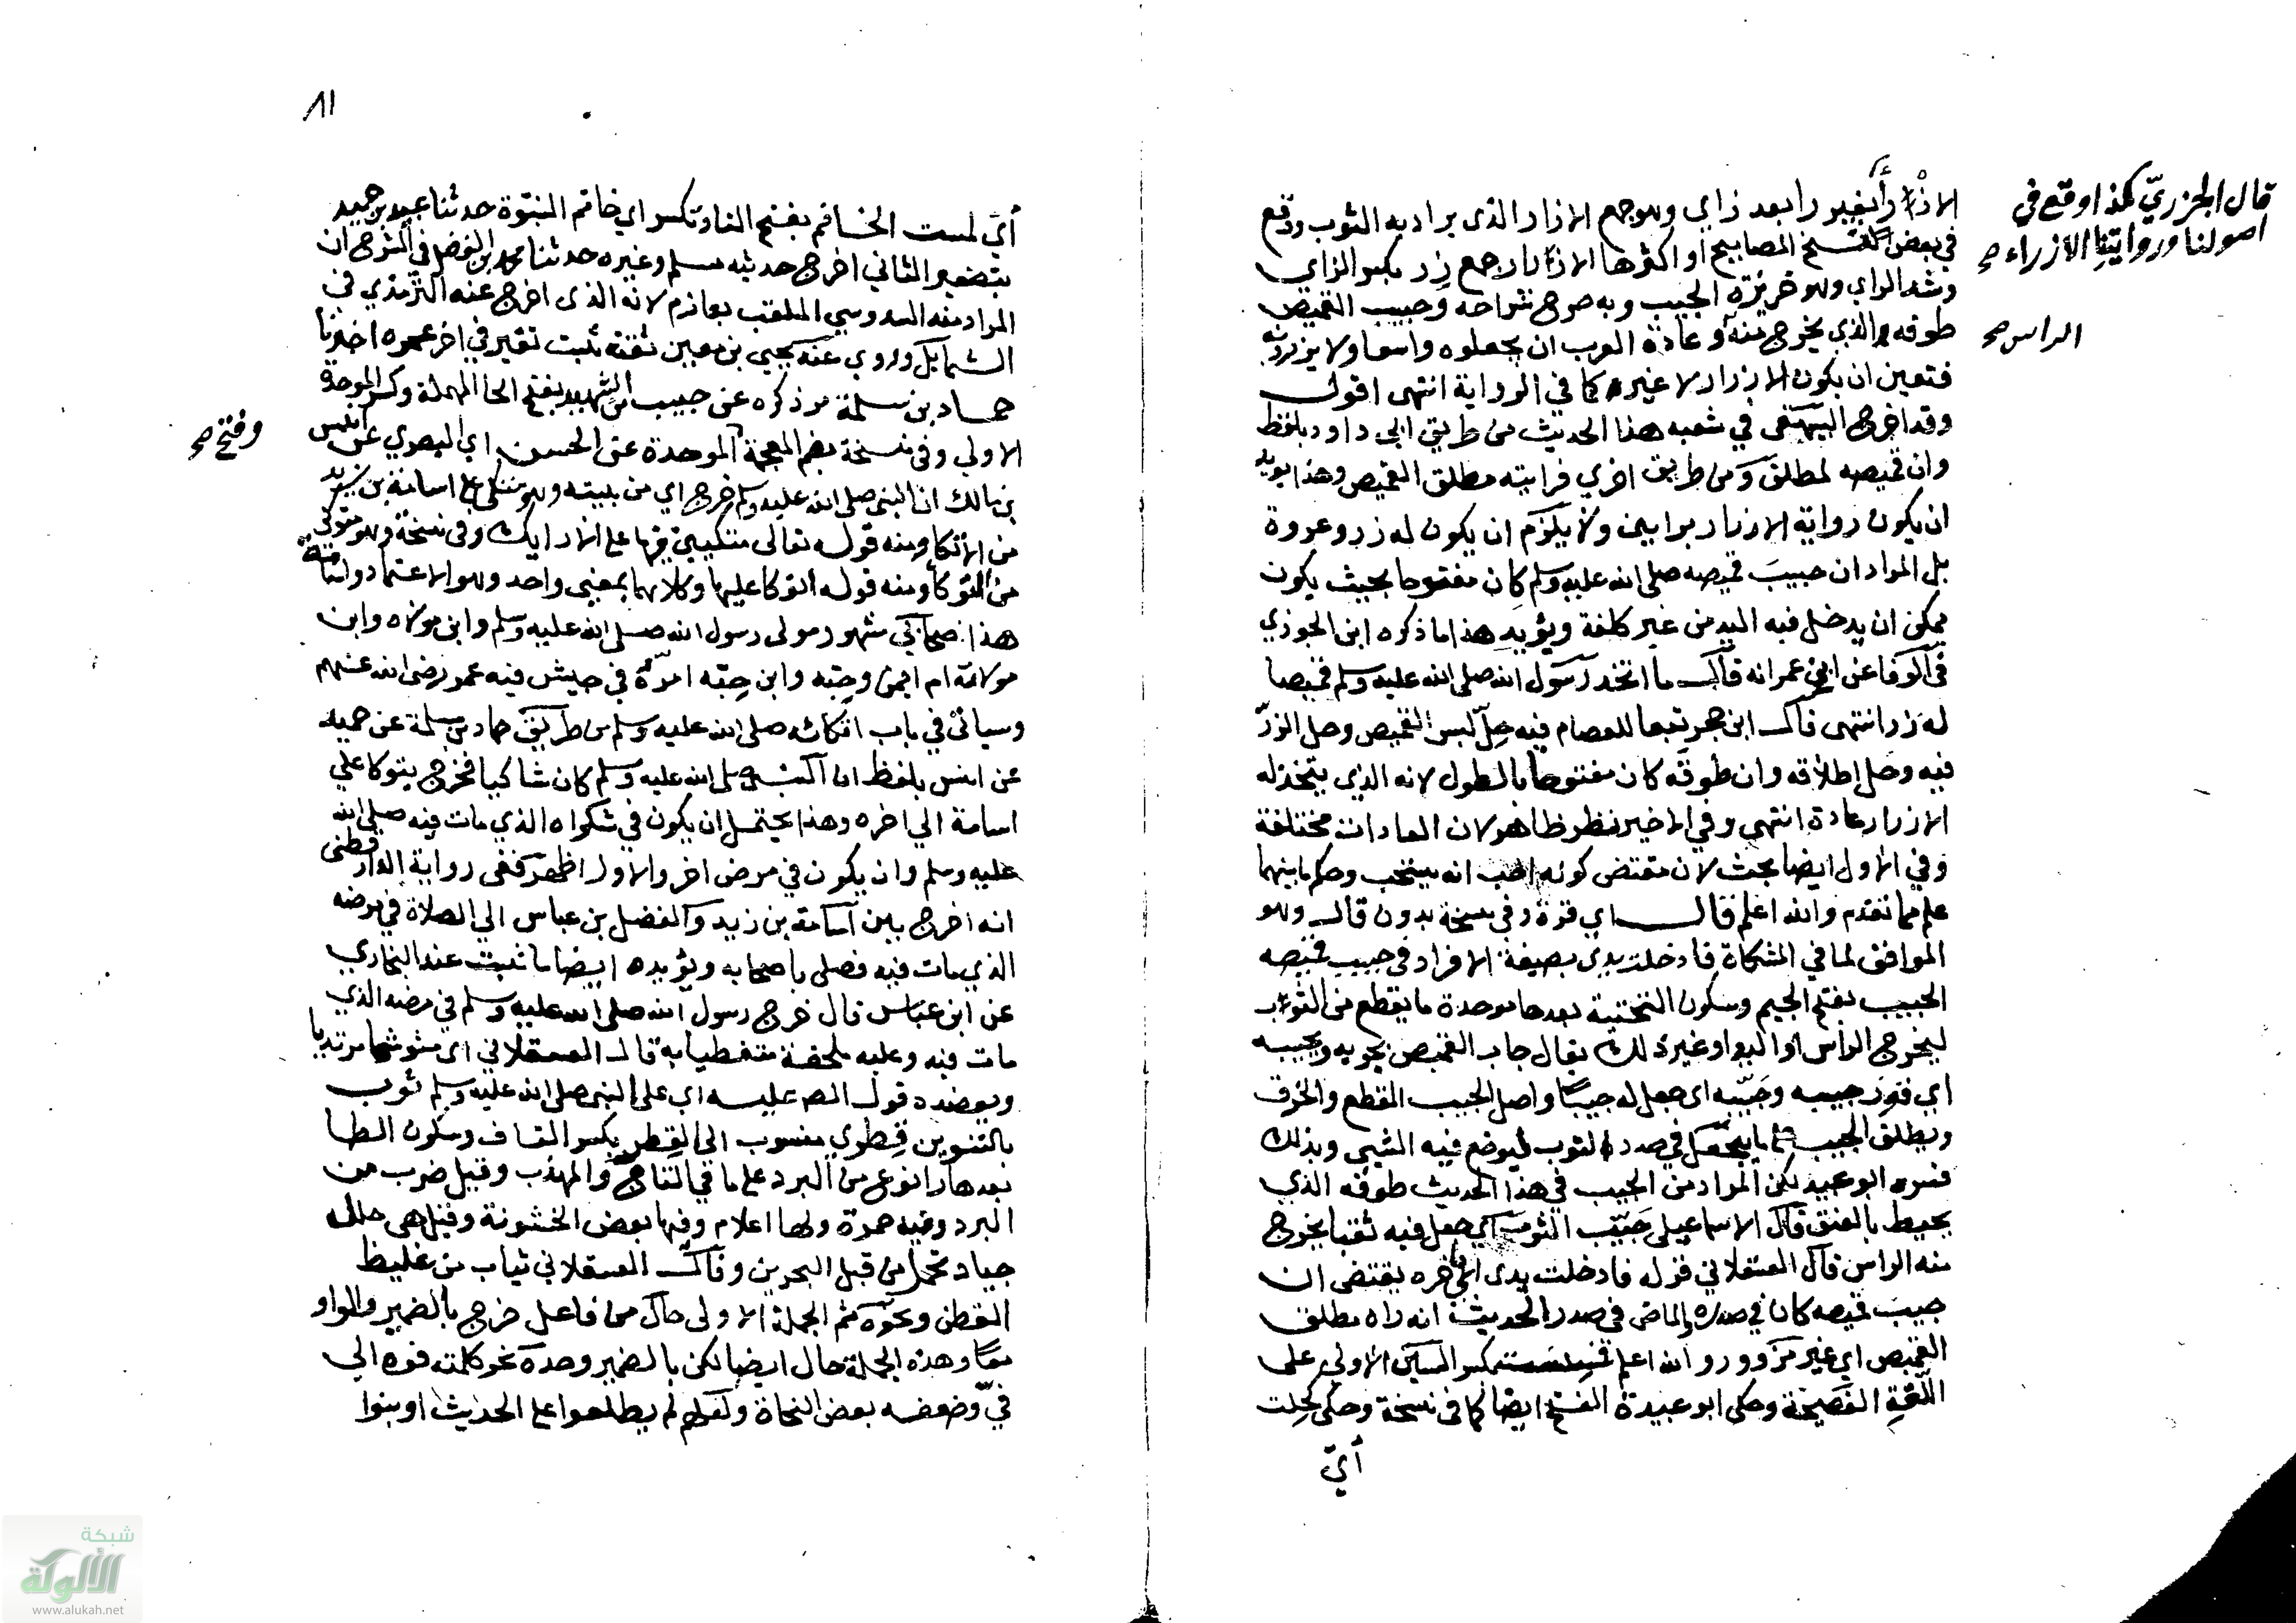 قال الجزري كذا وقع في
اصولنا وروايتنا الازراء صح
الازرار بغير را بعد زاي وهو جمع الازار الذي يراد به الثوب ووقع
في بعض نسخ المصابيح او اكثرها الازرار جمع زر بكسر الزاي
وشد الراي وهو خريزة الجيب وبه صرح شراحه وجيب القميص
طوقه الذي يخرج منه وعادة العرب ان يجعلوه واسعا ولا يزررونه
الراس صح
فتعين ان يكون الازرار لا غير كما في الرواية انتهى اقول
وقد اخرج البيهقي في شعبه هذا الحديث من طريق ابي داود بلفظ
وان قميصه لمطلق ومن طريق اخري فرايته مطلق القميص وهذا يويد
ان يكون رواية الازرار براين ولا يلزم ان يكون له زر وعروة
بل المراد ان جيب قميصه صلى الله عليه وسلم كان مفتوحا بحيث يكون
يمكن ان يدخل فيه اليد من غير كلفة ويؤيد هذا ما ذكره ابن الجوزي
في الوفا عن ابن عمر انه قال ما اتخذ رسول الله صلى الله عليه وسلم قميصا
له زر انتهى قال ابن حجر تبعا للعصام فيه حل لبس القميص وحل الزر
فيه وحل اطلاقه وان طوقه كان مفتوحا بالطول لانه الذي يتخذ له
الازرار عادة انتهى وفي الاخير نظر ظاهر لان العادات مختلفة
وفي الاول ايضا بحث لان مقتضى كونه احب انه يستحب وحكم ما بينهما
علم مما تقدم والله اعلم قال اي قرة وفي نسخة بدون قال وهو
الموافق لما في المشكاة فادخلت يدي بصيغة الافراد في جيب قميصه
الجيب بفتح الجيم وسكون التحتية بعدها موحدة ما يقطع من الثوب
ليخرج الراس او اليد او غير ذلك يقال جاب القميص يجوبه ويجيبه
اي قور جيبه وجيبه اي جعل له جيبا واصل الجيب القطع والخرق
ويطلق الجيب علي ما يجعل في صدر الثوب ليوضع فيه الشي وبذلك
فسره ابو عبيد لكن المراد من الجيب في هذا الحديث طوقه الذي
يحيط بالعنق قال الاسماعيلي جيب الثوب اي جعل فيه ثقبا يخرج
منه الراس قال العسقلاني قوله فادخلت يدي الى اخره يقتضى ان
جيب قميصه كان في صدره والماض في صدر الحديث انه راه مطلق
القميص اي غير مزرور والله اعلم فمسست بكسر السين الاولى على
اللغة الفصيحة وحكى ابو عبيدة الفتح ايضا كما في نسخة وحكى كحلت
أي
٨١
أي لمست الخاتم بفتح التا وتكسر اي خاتم النبوة حدثنا عبد بن حميد
بتصغير الثاني اخرج حديثه مسلم وغيره حدثنا محمد بن الفضل في الشرح ان
المراد منه السدوسي الملقب بعارم لانه الذي اخرج عنه الترمذي في
الشمايل وروى عنه يحيى بن معين ثقة ثبت تغير في اخر عمره اخبرنا
حماد بن سلمة مر ذكره عن حبيب بن الشهيد بفتح الحا المهملة وكسر الموحدة
الاولى وفي نسخة بضم المعجمة الموحدة عن الحسن اي البصري عن انس
وفتح صح
بن مالك ان النبي صلى الله عليه وسلم خرج اي من بيته وهو متكئ على اسامة بن زيد
من الاتكا ومنه قوله تعالى متكيين فيها على الارايك وفي نسخة وهو متوكئ
من التوكأ ومنه قوله اتوكا عليها وكلاهما بمعنى واحد وهو الاعتماد واسامة
هذا صحابي مشهور مولى رسول الله صلى الله عليه وسلم وابن مولاه وابن
مولاته ام ايمن وحبه وابن حبه امره في جيش فيه عمر رضي الله عنهم
وسياتي في باب اتكائه صلى الله عليه وسلم من طريق حماد بن سلمة عن حميد
عن انس بلفظ ان النبي صلى الله عليه وسلم كان شاكيا فخرج يتوكا على
اسامة الي اخره وهذا يحتمل ان يكون في شكواه الذي مات فيه صلى الله
عليه وسلم وان يكون في مرض اخر والاول اظهر ففي رواية الدارقطني
انه اخرج بين اسامة بن زيد والفضل بن عباس الي الصلاة في مرضه
الذي مات فيه فصلى باصحابه ويؤيده ايضا ما ثبت عند البخاري
عن ابن عباس قال خرج رسول الله صلى الله عليه وسلم في مرضه الذي
مات فيه وعليه ملحفة متغطيا به قال العسقلاني اي متوشحا مرتديا
ويعضده قول المص عليه اي على النبي صلى الله عليه وسلم ثوب
بالتنوين قطري منسوب الى القطر بكسر القاف وسكون الطا
بعدها را نوع من البرد على ما في التاج والمهذب وقيل ضرب من
البرد وفيه حمرة ولها اعلام وفيها بعض الخشونة وقيل هي حلل
جياد تحمل من قبل البحرين وقال العسقلاني ثياب من غليظ
القطن ونحوه ثم الجملة الاولى حال من فاعل خرج بالضمير والواو
معا وهذه الجملة حال ايضا لكن بالضمير وحده نحو كلمته فوه الى
في وضعفه بعض النحاة ولعلهم لم يطلعوا على الحديث او بنوا
شبكة
الألوكة
www.alukah.net